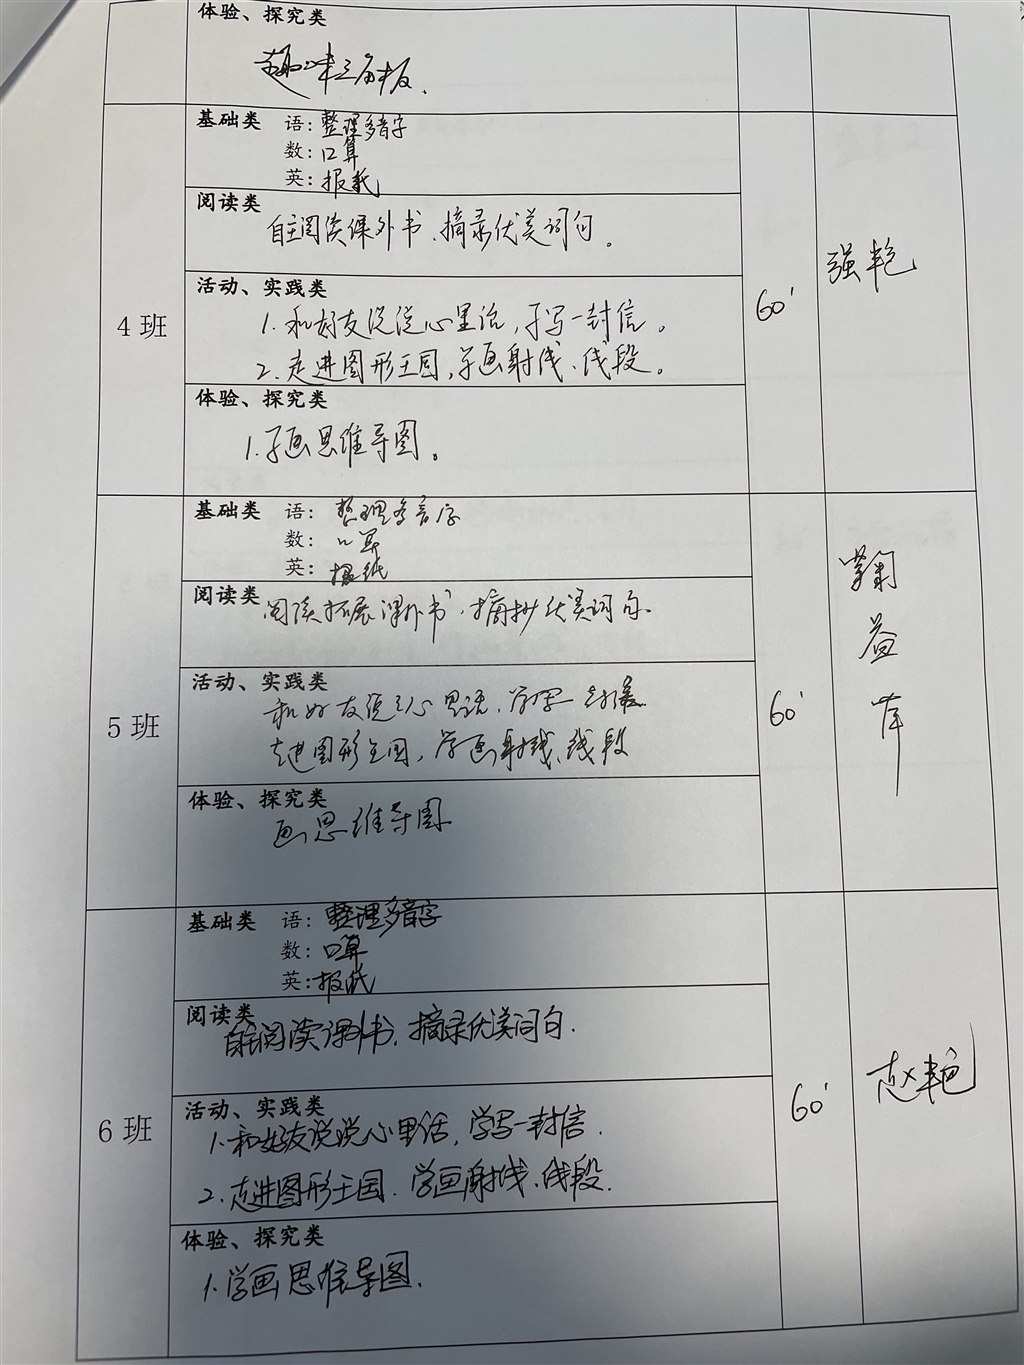 体验、探究类
趣味三角板.
基础类 语:整理多音字
数:口算
英:报纸
阅读类
自主阅读课外书、摘录优美词句。
4班
活动、实践类
1.和好友说说心里话,学写一封信。
2.走进图形王国,学画射线、线段。
60'
强艳
体验、探究类
1.学画思维导图。
基础类 语:整理多音字
数:口算
英:报纸
阅读类
阅读拓展课外书、摘抄优美词句.
5班
活动、实践类
和好友说说心里话、学写一封信.
走进图形王国,学画射线、线段
60'
鞠益
体验、探究类
画思维导图
基础类 语:整理多音字
数:口算
英:报纸
阅读类
自主阅读课外书、摘录优美词句.
6班
活动、实践类
1.和好友说说心里话,学写一封信.
2.走进图形王国.学画射线、线段.
60'
赵艳
体验、探究类
1.学画思维导图.